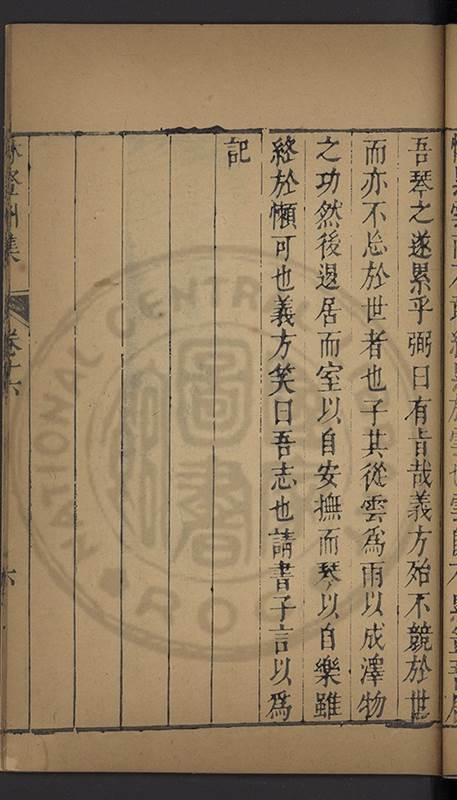 吾琴之遂累乎弼曰有旨哉義方殆不競於世
而亦不忘於世者也子其從雲爲雨以成澤物
之功然後退居而室以自安撫而琴以自樂雖
終於懶可也義方笑曰吾志也請書子言以爲
記
卷十六
六
圖書
NATIONAL CENTRAL